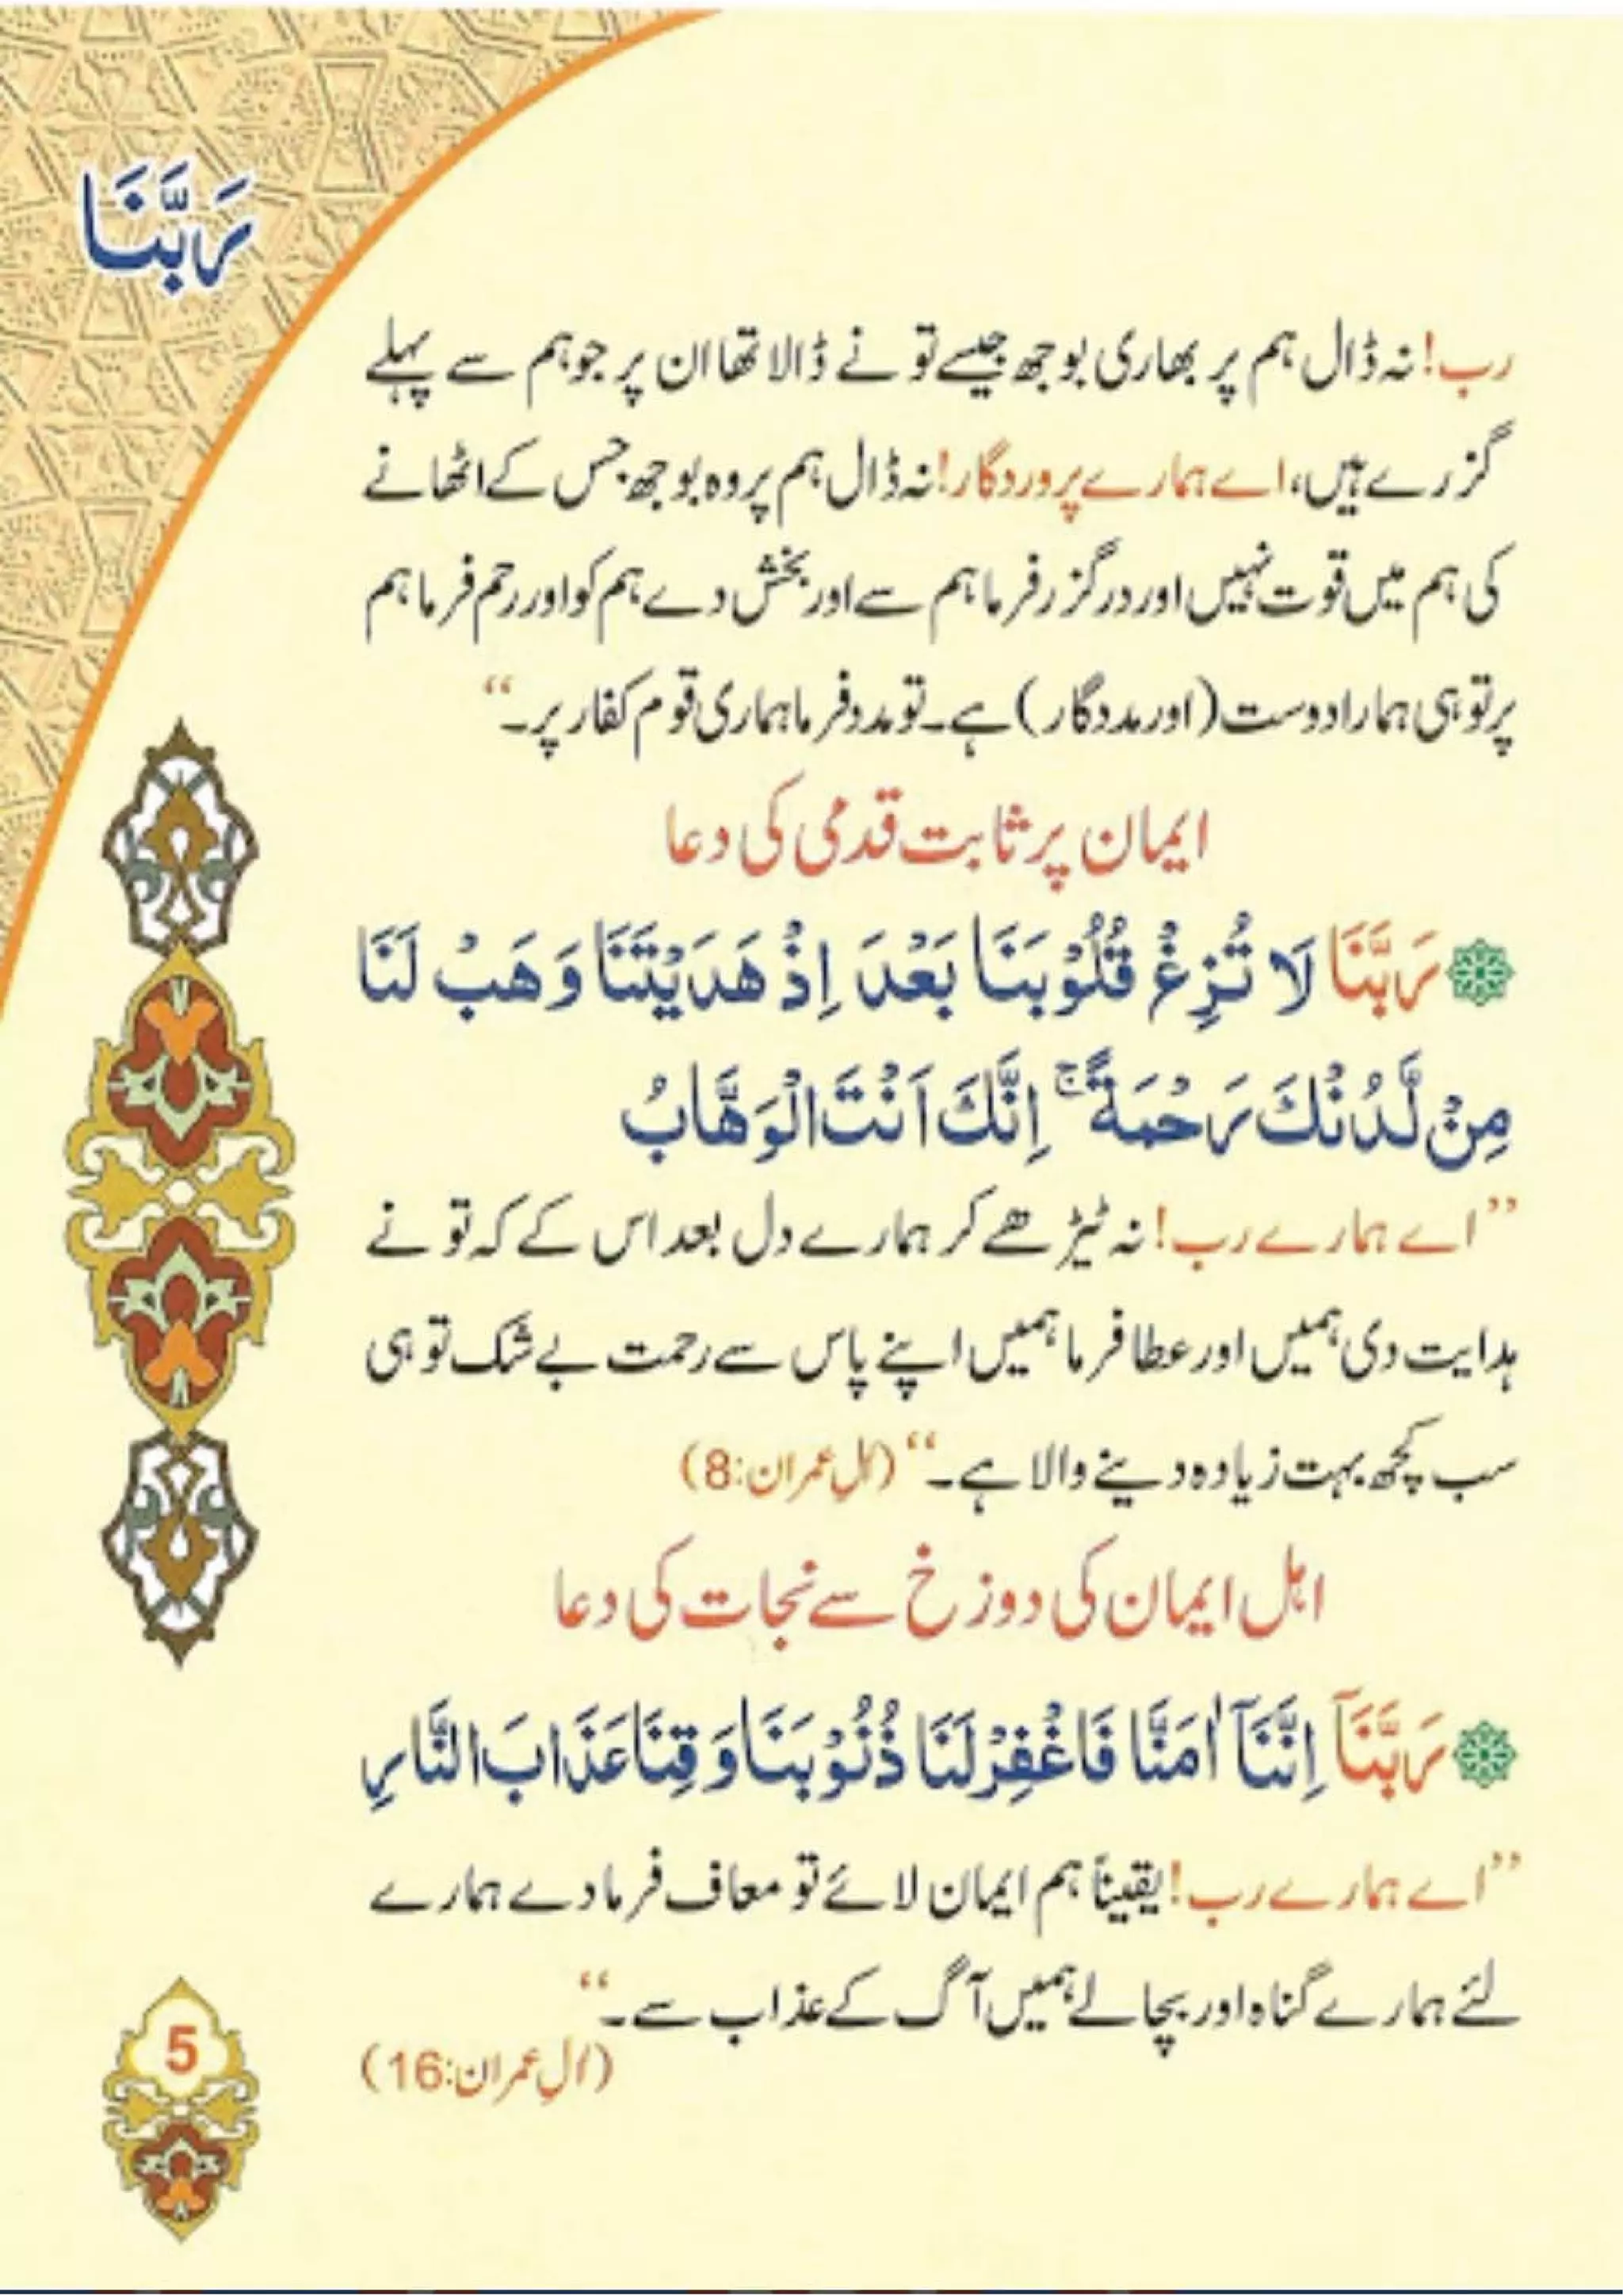 رَبَّنَا
رب! نہ ڈال ہم پر بھاری بوجھ جیسے تو نے ڈالا تھا ان پر جو ہم سے پہلے
گزرے ہیں، اے ہمارے پروردگار! نہ ڈال ہم پر وہ بوجھ جس کے اٹھانے
کی ہم میں قوت نہیں اور درگزر فرما ہم سے اور بخش دے ہم کو اور رحم فرما ہم
پر تو ہی ہمارا دوست (اور مددگار) ہے۔ تو مدد فرما ہماری قوم کفار پر۔“
ایمان پر ثابت قدمی کی دعا
رَبَّنَا لَا تُزِغْ قُلُوْبَنَا بَعْدَ اِذْ هَدَيْتَنَا وَهَبْ لَنَا
مِنْ لَّدُنْكَ رَحْمَةً ۚ اِنَّكَ اَنْتَ الْوَهَّابُ
”اے ہمارے رب! نہ ٹیڑھے کر ہمارے دل بعد اس کے کہ تو نے
ہدایت دی ہمیں اور عطا فرما ہمیں اپنے پاس سے رحمت بے شک تو ہی
سب کچھ بہت زیادہ دینے والا ہے۔“ (اٰلِ عمران:8)
اہل ایمان کی دوزخ سے نجات کی دعا
رَبَّنَآ اِنَّنَآ اٰمَنَّا فَاغْفِرْ لَنَا ذُنُوْبَنَا وَقِنَا عَذَابَ النَّارِ
”اے ہمارے رب! یقیناً ہم ایمان لائے تو معاف فرما دے ہمارے
لئے ہمارے گناہ اور بچا لے ہمیں آگ کے عذاب سے۔“
(اٰلِ عمران:16)
5